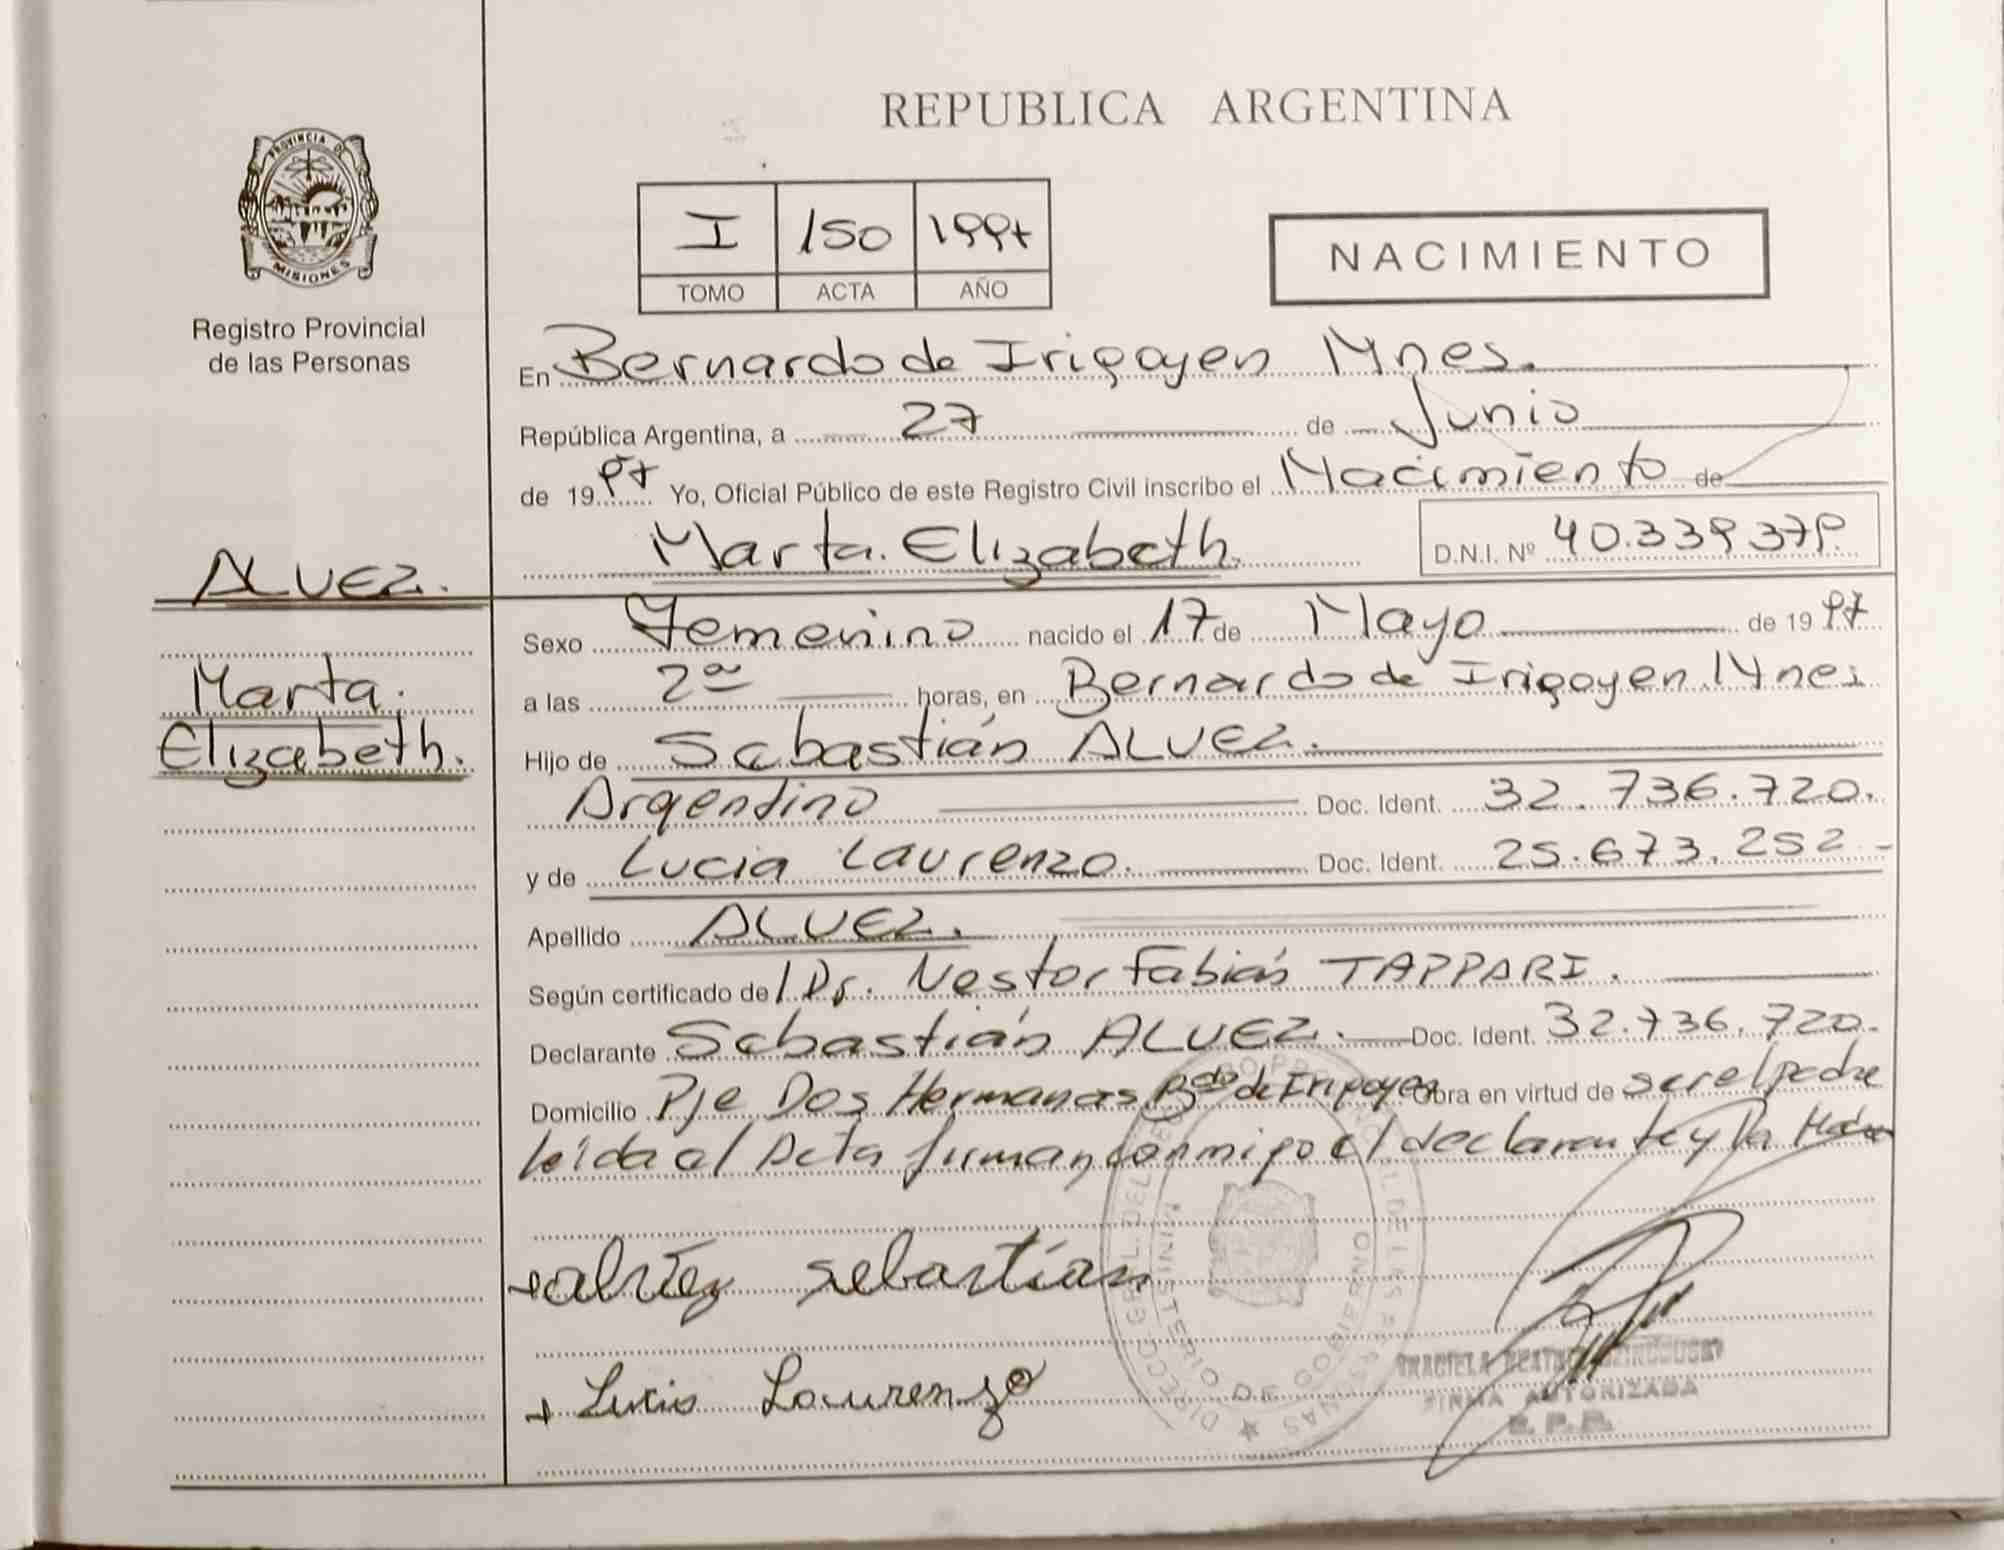 REPUBLICA ARGENTINA
PROVINCIA DE
MISIONES
Registro Provincial
de las Personas
I 150 1997
TOMO ACTA AÑO
NACIMIENTO
En Bernardo de Irigoyen Mnes.
República Argentina, a 27 de Junio
de 1997 Yo, Oficial Público de este Registro Civil inscribo el Nacimiento de
Marta Elizabeth. D.N.I. Nº 40.339.379.
ALVEZ.
Marta.
Elizabeth.
Sexo Femenino nacido el 17 de Mayo de 1997
a las 2 horas, en Bernardo de Irigoyen Mnes
Hijo de Sebastián ALVEZ.
Argentino Doc. Ident. 32.736.720.
y de Lucia Laurenzo. Doc. Ident. 25.673.252-
Apellido ALVEZ.
Según certificado de Dr. Nestor Fabián TAPPARI.
Declarante Sebastián ALVEZ. Doc. Ident. 32.736.720.
Domicilio Pje Dos Hermanas Bdo de Irigoyen Obra en virtud de ser el padre
leida el Acta firman conmigo el declarante y la Madre
alvez sebastían
Lucia Laurenzo
FIRMA AUTORIZADA